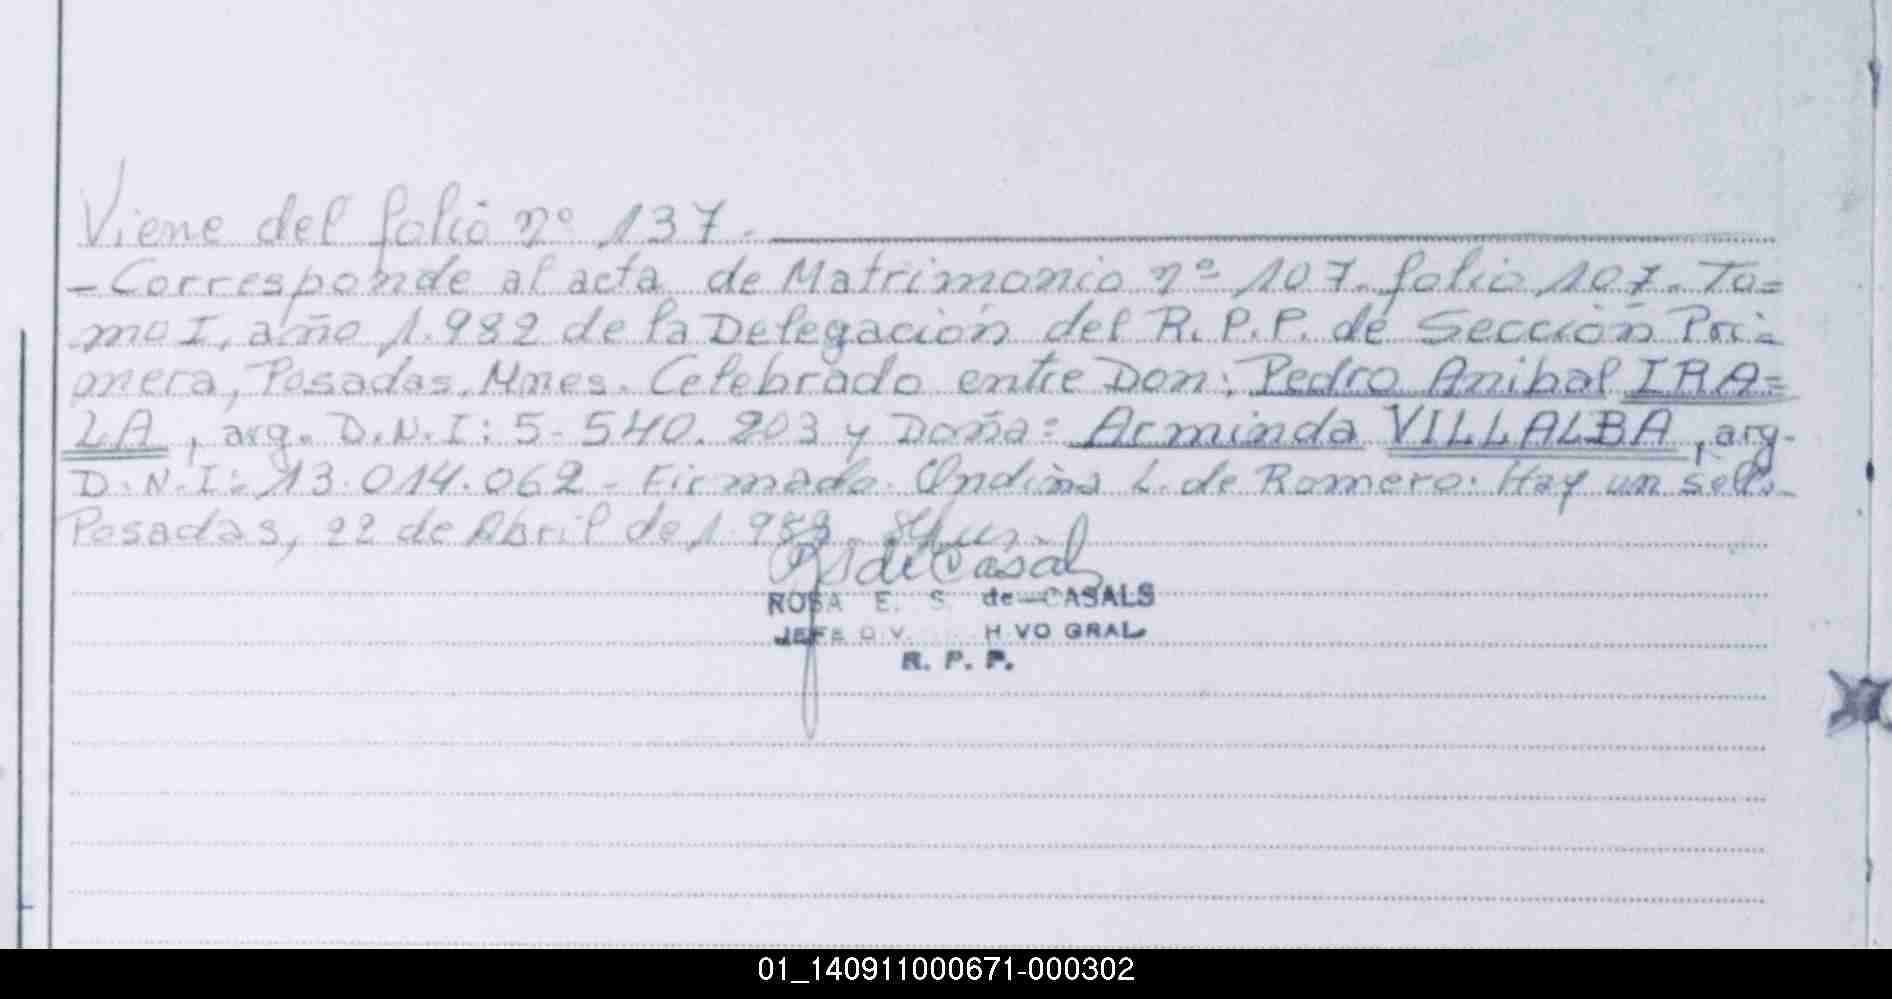 Viene del folio nº 137.
- Corresponde al acta de Matrimonio nº 107. folio 107. To=
mo I, año 1.982 de la Delegación del R.P.P. de Sección Pri=
mera, Posadas, Mnes. Celebrado entre Don: Pedro Anibal IRA=
LA, arg. D.N.I: 5.540.203 y Doña: Arminda VILLALBA, arg.
D.N.I: 13.014.062 - Firmado. Ondina L. de Romero. Hay un sello.
Posadas, 22 de Abril de 1.982.
ROSA E. S. de CASALS
JEFE GRAL
R. P. P.
01_140911000671-000302